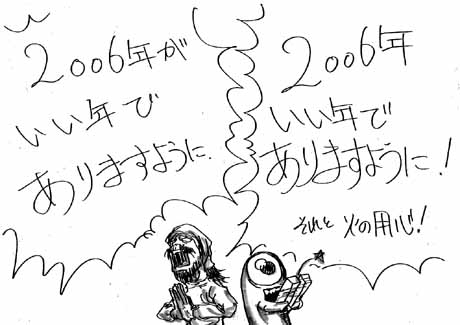 2006年が
いい年で
ありますように.
2006年
いい年で
ありますように!
それと 火の用心!